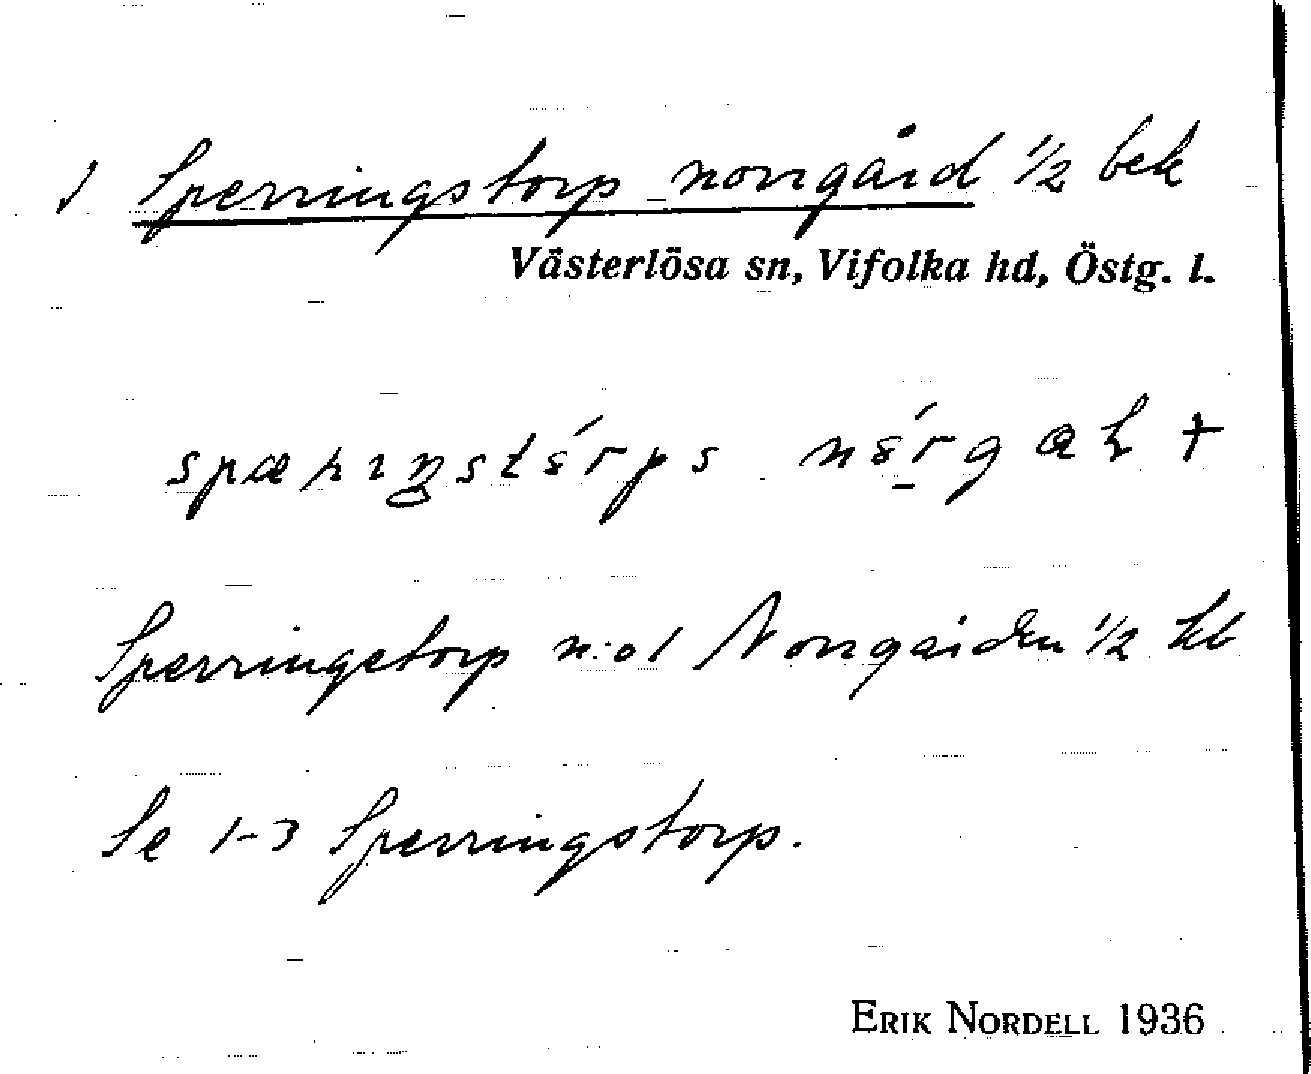 1 Sperringstorp norrgård 1/2 bek
Västerlösa sn, Vifolka hd, Östg. l.
Sperringetorp n:o 1 Norrgården 1/2 hl
Se 1-3 Sperringstorp.
ERIK NORDELL 1936